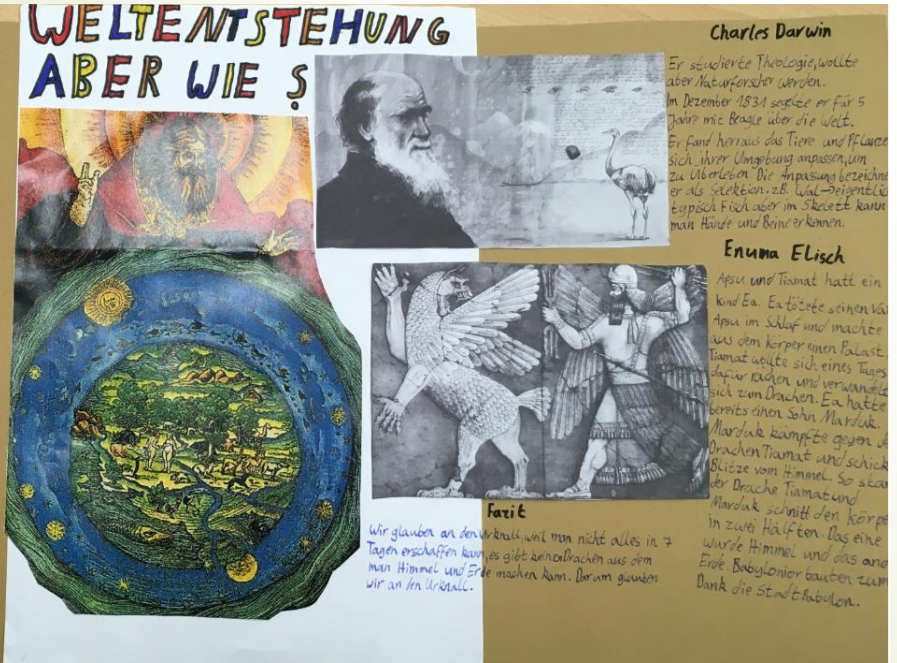 WELTENTSTEHUNG
ABER WIE ?
Charles Darwin
Er studierte Theologie, wollte
aber Naturforscher werden.
Im Dezember 1831 segelte er für 5
Jahre mit Beagle über die Welt.
Er fand herraus das Tiere und Pflanze
sich ihrer Umgebung anpassen, um
zu Überleben. Die Anpassung bezeichne
er als Selektion. z.B. Wal → eigentlic
typisch Fisch aber im Skelett kann
man Hände und Beine erkennen.
Enuma Elisch
Apsu und Tiamat hatt ein
kind Ea. Ea tötete seinen Va
Apsu im Schlaf und machte
aus dem körper einen Palast.
Tiamat wollte sich eines Tages
dafür rächen und verwandelt
sich zum Drachen. Ea hatte
bereits einen Sohn Marduk.
Marduk kämpfte gegen d
Drachen Tiamat und schick
Blitze vom Himmel. So star
der Drache Tiamat und
Marduk schnitt den körpe
in zwei Hälften. Das eine
wurde Himmel und das and
Erde. Babylonior bauten zum
Dank die Stadt Babylon.
Fazit
Wir glauben an den Urknall, weil man nicht alles in 7
Tagen erschaffen kann, es gibt keinen Drachen aus dem
man Himmel und Erde machen kann. Darum glauben
wir an den Urknall.